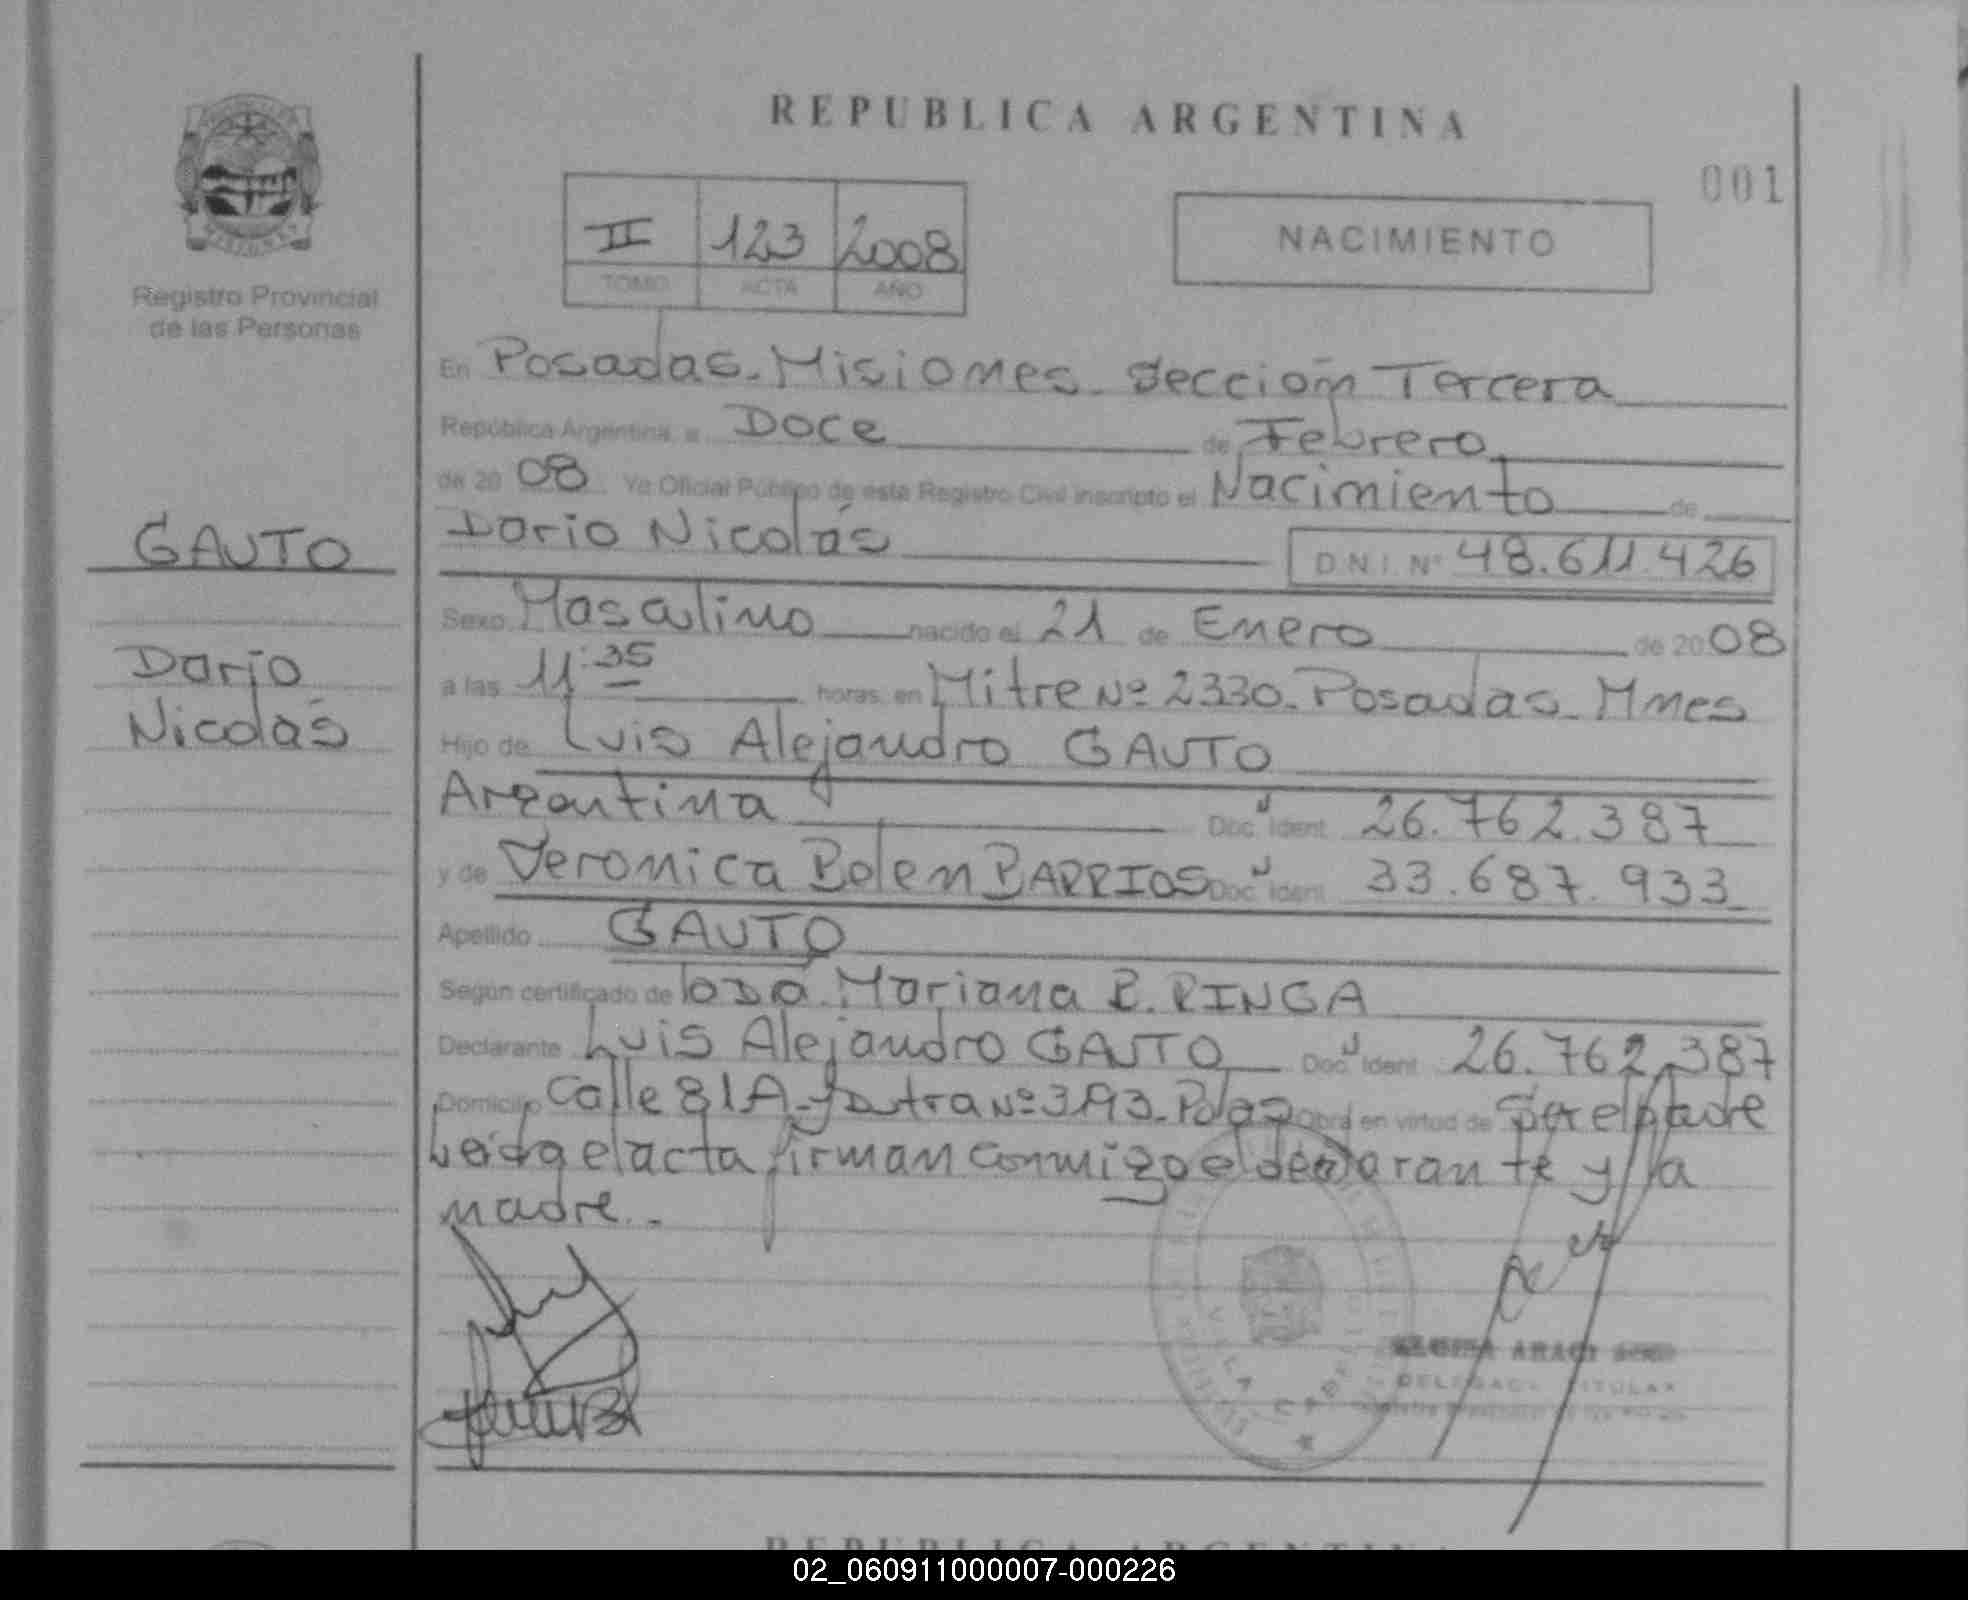 REPUBLICA ARGENTINA
001
II 123 2008
TOMO ACTA AÑO
NACIMIENTO
Registro Provincial
de las Personas
GAUTO
Dario
Nicolás
En Posadas. Misiones. Sección Tercera
República Argentina, a Doce de Febrero
de 20 08 Yo Oficial Público de esta Registro Civil inscripto el Nacimiento de
Dario Nicolás D.N.I. Nº 48.611.426
Sexo Masculino nacido el 21 de Enero de 20 08
a las 11:35 horas, en Mitre Nº 2330. Posadas. Mnes
Hijo de Luis Alejandro GAUTO
Argentina Doc. Ident 26.762.387
y de Veronica Belen BARRIOS Doc. Ident 33.687.933
Apellido GAUTO
Según certificado de Mariana R. RINGA
Declarante Luis Alejandro GAUTO Doc. Ident 26.762.387
Domicilio Calle 81A Nº Obra en virtud de Ser el padre
Leida el acta firman conmigo el declarante y la
madre.
VILLA CABELLO
ARACI
DELEGADA TITULAR
REPUBLICA ARGENTINA
02_060911000007-000226